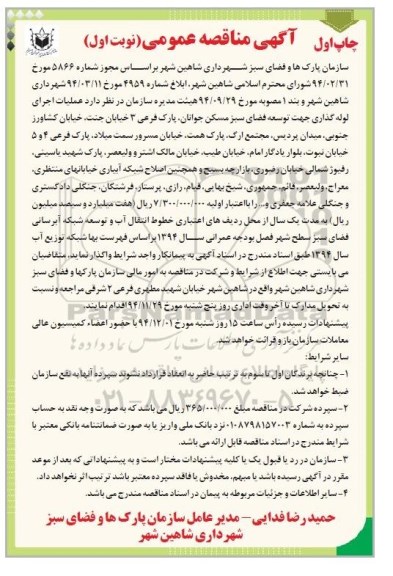 چاپ اول
آگهی مناقصه عمومی (نوبت اول)
سازمان پارک ها و فضای سبز شهرداری شاهین شهر براساس مجوز شماره ۵۸۶۶ مورخ
۹۴/۰۲/۳۱ شورای محترم اسلامی شاهین شهر، ابلاغ شماره ۴۹۵۹ مورخ ۹۴/۰۳/۱۱ شهرداری
شاهین شهر و بند ۱ مصوبه مورخ ۹۴/۰۹/۲۹ هیئت مدیره سازمان در نظر دارد عملیات اجرای
لوله گذاری جهت توسعه فضای سبز مسکن جوانان، پارک فرعی ۳ خیابان جنت، خیابان کشاورز
جنوبی، میدان پردیس، مجتمع ارگ، پارک همت، خیابان مسرور سمت میلاد، پارک فرعی ۴ و ۵
خیابان نبوت، بلوار یادگار امام، خیابان طبیب، خیابان مالک اشتر و ولیعصر، پارک شهید یاسینی،
رفیوژ شمالی خیابان رضوری، بازارچه بسیج و همچنین اصلاح شبکه آبیاری خیابانهای منتظری،
معراج، ولیعصر، قائم، جمهوری، شیخ بهایی، قیام، رازی، پرستار، فرشتگان، جنگلی دادگستری
و جنگلی علامه جعفری و... را با اعتبار اولیه ۷/۳۰۰/۰۰۰/۰۰۰ ریال (هفت میلیارد و سیصد میلیون
ریال) به مدت یک سال از محل ردیف های اعتباری خطوط انتقال آب و توسعه شبکه آبرسانی
فضای سبز سطح شهر فصل بودجه عمرانی سال ۱۳۹۴ براساس فهرست بها شبکه توزیع آب
سال ۱۳۹۴ طبق اسناد مندرج در اسناد آگهی به پیمانکار واجد شرایط واگذار نماید، متقاضیان
می بایستی جهت اطلاع از شرایط و شرکت در مناقصه به امور مالی سازمان پارکها و فضای سبز
شهرداری شاهین شهر واقع در شاهین شهر خیابان شهید مطهری فرعی ۲ شرقی مراجعه و نسبت
به تحویل مدارک تا آخر وقت اداری روز پنج شنبه مورخ ۹۴/۱۱/۲۹ اقدام نمایند.
پیشنهادات رسیده رأس ساعت ۱۵ روز شنبه مورخ ۹۴/۱۲/۰۱ با حضور اعضاء کمیسیون عالی
معاملات سازمان باز و قرائت خواهد شد.
سایر شرایط:
۱- چنانچه برندگان اول تا سوم به ترتیب حاضر به انعقاد قرارداد نشوند سپرده آنها به نفع سازمان
ضبط خواهد شد.
۲- سپرده شرکت در مناقصه مبلغ ۳۶۵/۰۰۰/۰۰۰ ریال می باشد که به صورت وجه نقد به حساب
سپرده به شماره ۰۱۰۸۷۹۸۱۵۷۰۰۳ نزد بانک ملی واریز یا به صورت ضمانتنامه بانکی معتبر با
شرایط مندرج در اسناد مناقصه قابل ارائه می باشد.
۳- سازمان در رد یا قبول یک یا کلیه پیشنهادات مختار است و به پیشنهاداتی که بعد از موعد
مقرر در آگهی رسیده باشد یا مبهم، مخدوش یا فاقد سپرده معتبر باشد ترتیب اثر نخواهد داد.
۴- سایر اطلاعات و جزئیات مربوطه به پیمان در اسناد مناقصه مندرج می باشد.
حمید رضا فدایی - مدیر عامل سازمان پارک ها و فضای سبز
شهرداری شاهین شهر
ParsNamadData
۰۲۱-۸۸۳۴۹۶۷۰-۵